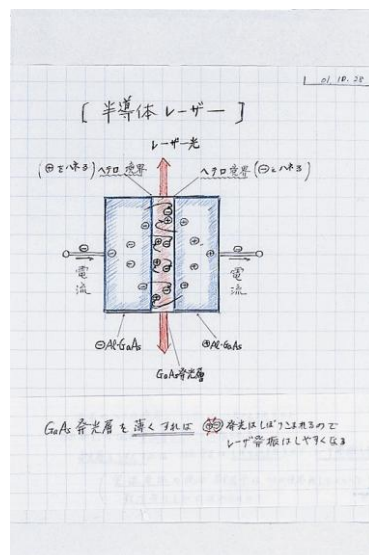 01.10.28
[ 半導体レーザー ]
レーザー光
(⊕をハネる) ヘテロ境界
ヘテロ境界 (⊖をハネる)
⊖
⊖
電流
電流
⊖Al・GaAs
⊕Al・GaAs
GaAs発光層
GaAs発光層を薄くすれば ⊕⊖発光はしぼりこまれるので
レーザ発振はしやすくなる